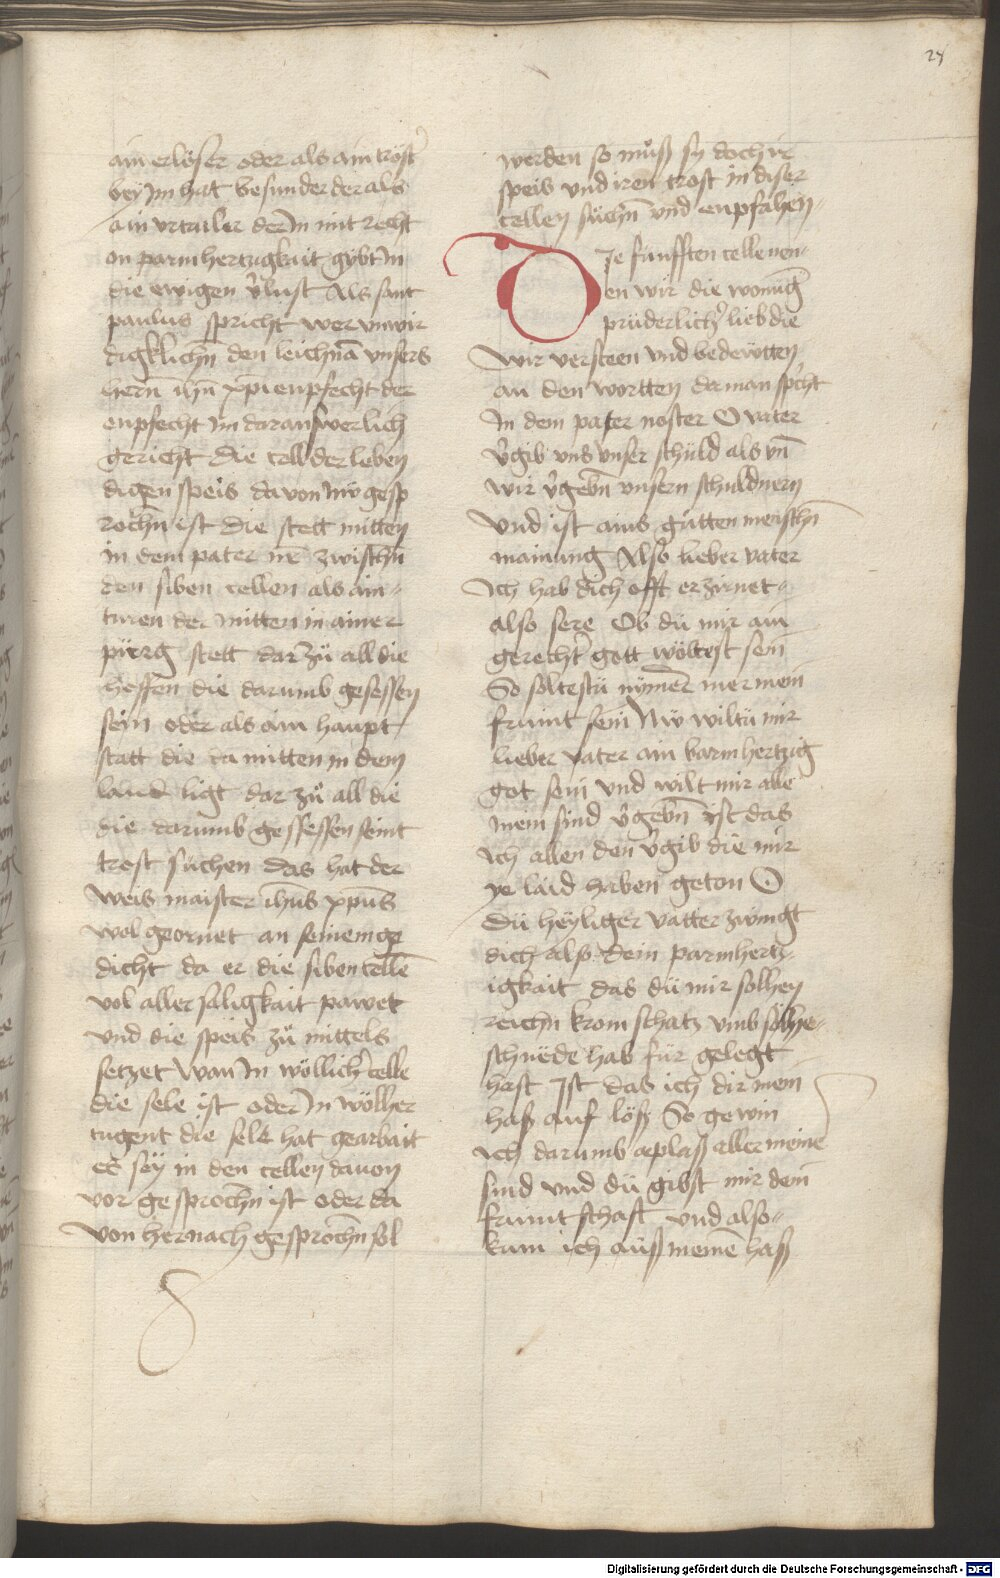 28
ain erlöser oder als ain tröst͛
bey Im hat besunder der als
ain vrtailer der In mit recht
on parmhertzigkait gybt In
die ewigen v͛lust Als sant
paulus spricht wer vnwir
digklichn̄ den leichnā vnsers
hern̄ ihū xp̄i enpfecht der
enpfecht im daran swerlich
gericht Die cell der leben
digen speis da von nw gesp
rochn̄ ist Die stett mitten
in dem pater nr̄ zwischn̄
den siben cellen als ain-
turen der mitten in ainer
pürg stett dar zü all die
heffen die darumb gesessen
sein oder als ain haupt-
statt die da mitten in dem
land ligt dar zů all die
die darumb gessessen seint
trost süchen das hat der
weis maister ihūs xp̄us
wol geornet an seinem ge
dicht da er die siben cellē
vol aller saligkait pawet
vnd die speis zů mittels
setzet wan In wöllich͛ celle
die sele ist oder In wölher
tugent die sele hat gearbait
es sey in den cellen dauon
vor gesprochn̄ ist oder da
von hernach gesprochn̄ sol
werden so můß sy doch ir
speis vnd iren trost in diser
cellen süchn̄ vnd enpfahen-
DIe fünfften celle nen-
en wir die wonūg
prüderlich͛ lieb die
wir versteen vnd bedewtten
an den wortten da man sp͛cht
In dem pater noster O vater
v͛gib vns vnser schüld als vn̄
wir v͛gebn̄ vnsern schuldnern
vnd ist ains gütten menschn̄
mainung Also lieber vater
Ich hab dich offt erzirnet-
also sere Ob dü mir ain
gerecht͛ gott wöltest sein
So soltestü nymer mer mein
fraint sein Nw wiltü mir
lieber vater ain barmhertzig
got sein vnd wilt mir alle
mein sind v͛gebn̄ ist das
ich allen den v͛gib die mir
ye laid haben geton O
Dü heyliger vatter zwingt
dich also dein parmhertz-
igkait das dü mir solhen
reichn̄ krom schatz vmb sölhe-
schnëde hab für gelegt
hast Ist das ich dir mein
haß auf löß So gewin
ich darumb aplaß aller meine
sind vnd dü gibst mir dein
fraintschaft vnd also-
kain ich auß meinē haß
Digitalisierung gefördert durch die Deutsche Forschungsgemeinschaft - DFG